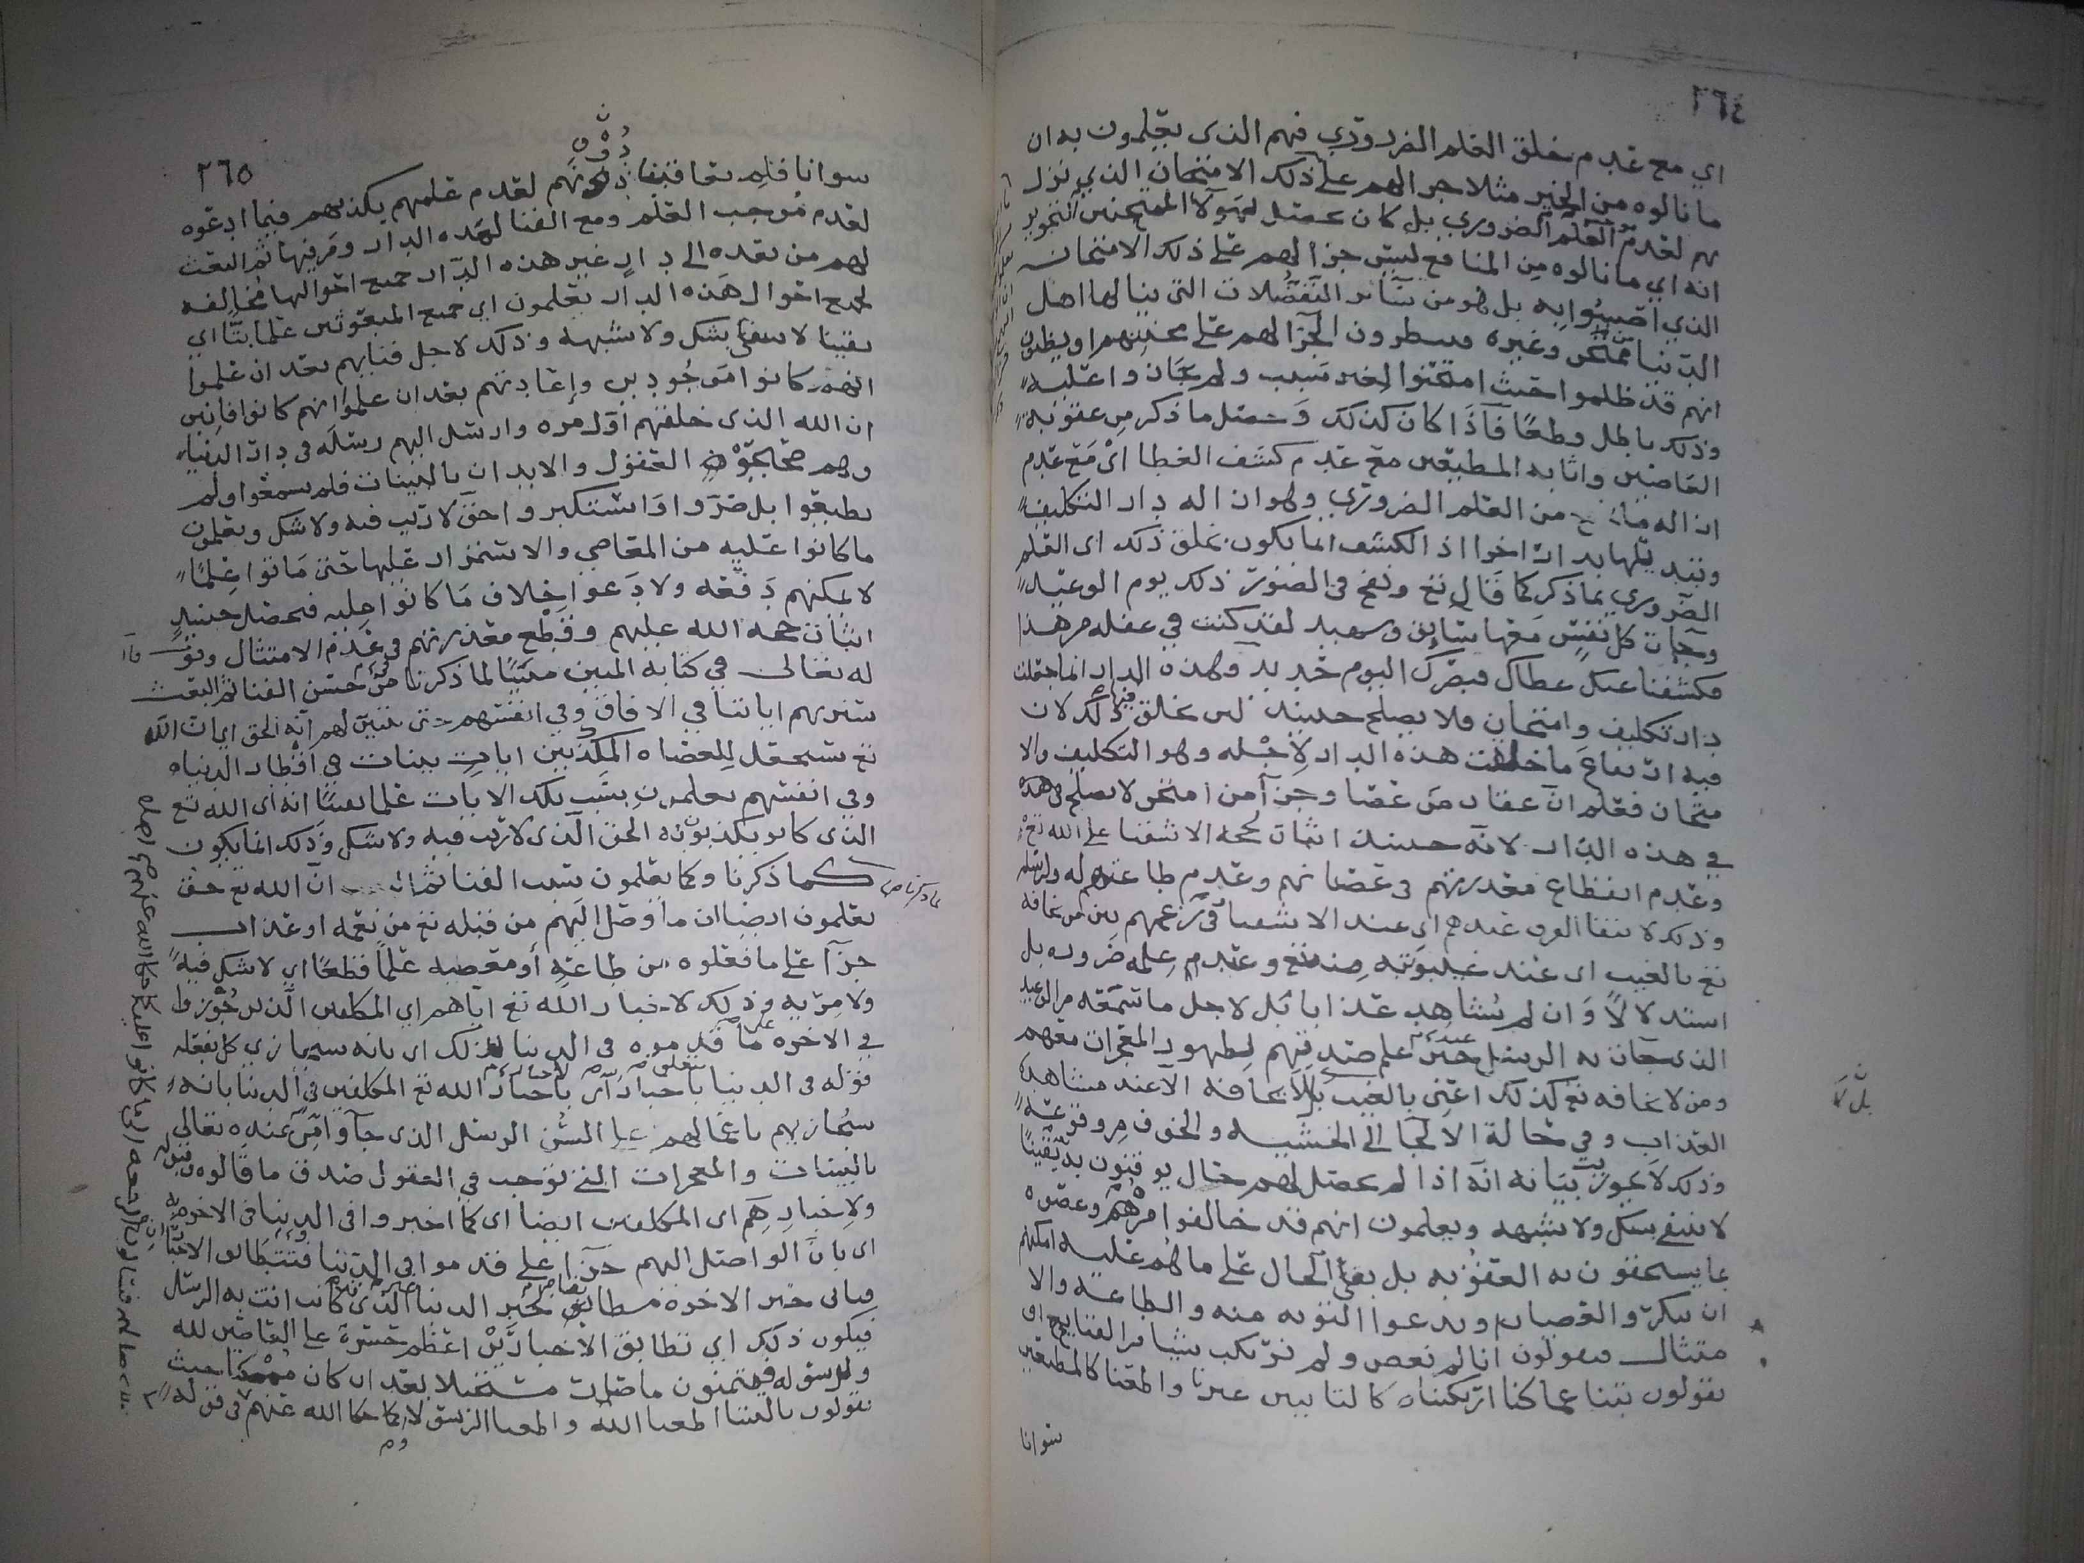 ٢٦٤
اي مع عدم خلق العلم الضروري فيهم الذي يعلمون به ان
ما نالوه من الخير مثلا جزا لهم على ذلك الامتحان الذي نزل
بهم لعدم العلم الضروري بل كان يحصل لهؤلاء الممتحنين
انه اي ما نالوه من المنافع ليس جزا لهم على ذلك الامتحان
الذي اصيبوا به بل هو من سائر التفضلات التي ينالها اهل
الدنيا وغيره وينظرون الجزا لهم على محنتهم او يظنون
انهم قد ظلموا حيث امتحنوا لغير سبب ولم يجازوا عليه
وذلك باطل قطعًا فاذا كان كذلك وحصل ما ذكر من عقوبة
العاصين واثابه المطيعين مع عدم كشف الغطا اي مع عدم
ازاله من العلم الضروري وهو ازاله دار التكليف
وتبديلها بدار اخرا اذ الكشف انما يكون بخلق ذلك اي العلم
الضروري بما ذكر كما قال تع ونفخ في الصور ذلك يوم الوعيد
وجآت كل نفس معها سايق وشهيد لقد كنت في غفله من هذا
فكشفنا عنك غطاك فبصرك اليوم حديد وهذه الدار انما جعلت
دار تكليف وامتحان فلا يصلح حينئذ ان يخلق فيها ذلك لان
فيه ارتفاع ما خلقت هذه الدار لاجله وهو التكليف والا
متحان فعلم ان عقاب من عصا وجزآ من امتحن لا يصلح في هذه
في هذه الدار لانه حينئذ اثبات لحجه الاشقيا على الله تع
وعدم انقطاع معذرتهم في عصيانهم وعدم طاعتهم له ولرسله
وذلك لانتفا الفرق عندهم اي عند الاشقيا في زعمهم بين من يخافه
تع بالغيب اي عند غيبوبته منه تع وعدم علمه ضروره بل
استدلالًا وان لم يشاهد عذابا بل لاجل ما سمعه من الوعيد
الذي جات به الرسل حين علم صدقهم لظهور المعجزات معهم
ومن لا يخافه تع كذلك اعني بالغيب بل لا يخافه الا عند مشاهده
العذاب وفي حالة الالجا الى الخشيه والخوف من وقوعه
وذلك لا يجوز بيانه انه اذا لم يحصل لهم حال يوقنون به يقينًا
لا ينتفي بشك ولا شبهه ويعلمون انهم قد خالفوا امرهم وعصوه
بما يستحقون به العقوبه بل بقي الحال على ما هم عليه امكنهم
ان ينكروا العصيان ويدعوا التوبه منه والطاعه والا
متثال فيقولون انا لم نعص ولم نرتكب شيئا من القبايح او
يقولون تبنا عما كنا ارتكبناه كالتايبين غيرنا واطعنا كالمطيعين
سوانا
بل لا
٢٦٥
سوانا فلم تعاقبنا دونهم لعدم علمهم بكذبهم فيما ادعوه
لعدم موجب العلم ومع الفنا لهذه الدار ومن فيها ثم البعث
لهم من بعده الى دار غير هذه الدار جميع احوالها مخالفه
لجميع احوال هذه الدار يعلمون اي جميع المبعوثين علما بتّا اي
يقينا لا ينتفي بشك ولا شبهه وذلك لاجل فنايهم بعد ان علموا
انهم كانوا موجودين واعادتهم بعد ان علموا انهم كانوا فانين
ان الله الذي خلقهم اول مره وارسل اليهم رسله في دار الدنيا
وهم صحيحو العقول والابدان بالبينات فلم يسمعوا ولم
يطيعوا بل اصروا واستكبروا حق لا ريب فيه ولا شك ويعلمون
ما كانوا عليه من المعاصي والاستمرار عليها حتى ماتوا علمًا
لا يمكنهم دفعه ولا دعوا خلاف ما كانوا عليه فيحصل حينئذ
اثبات حجه الله عليهم وقطع معذرتهم في عدم الامتثال وقو
له تعالى في كتابه المبين مبينًا لما ذكرنا من حسن الفنا ثم البعث
سنريهم اياتنا في الافاق وفي انفسهم حتى يتبين لهم انه الحق اي ان الله
تع سيجعل للعصاه المكذبين ايات بينات في اقطار الدنيا
وفي انفسهم يعلمون بسبب تلك الايات علما يقينًا انه اي الله تع
الذي كانوا يكذبون به الحق الذي لا ريب فيه ولا شك وذلك انما يكون
كما ذكرنا وكما يعلمون بسبب الفنا ان الله تع حق
يعلمون ايضا ان ما وصل اليهم من قبله تع من نعمه او عذاب
جزآ على ما فعلوه من طاعته او معصيه علمًا قطعًا اي لا شك فيه
ولا مريه وذلك لاخبار الله تع اياهم اي المكلفين الذين جوزوا
في الاخره على ما قدموه في الدنيا بذلك اي بانه سيجازي كل بفعله
قوله في الدنيا باخبار الله تع المكلفين في الدنيا بانه
سيجازيهم باعمالهم على السن الرسل الذي جآوا من عنده تعالى
بالبينات والمعجزات التي توجب في العقول صدق ما قالوه
ولاخبارهم اي المكلفين ايضا اي كما اخبروا في الدنيا في الاخره
اي بان الواصل اليهم جزآ على ما قدموا في الدنيا فيتطابق الاخباران
فياتي خبر الاخره مطابقا لخبر الدنيا الذي كانت اتت به الرسل
فيكون ذلك اي تطابق الاخبارين اعظم حسرة على العاصين لله
ولرسوله فيتمنون ما صار مستحيلا بعد ان كان ممكنا حيث
يقولون يا ليتنا اطعنا الله واطعنا الرسولا كما حكا الله عنهم في قوله